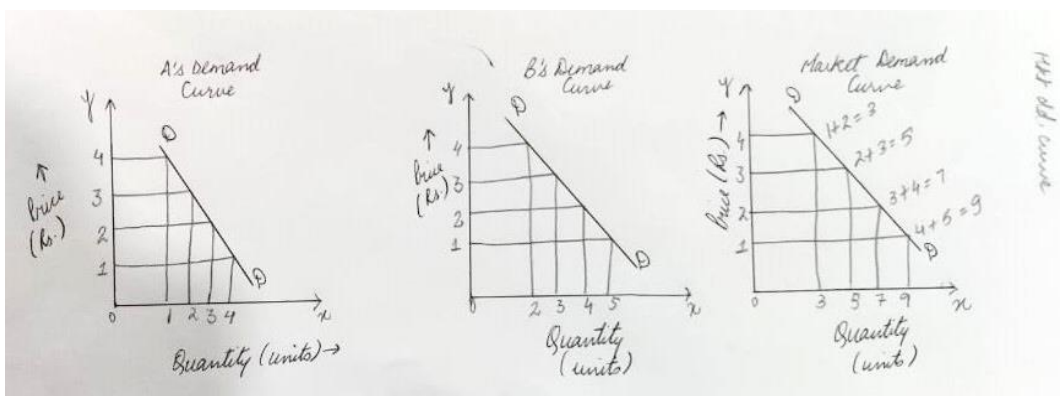 A's Demand
Curve
y
↑
Price
(Rs.)
4
3
2
1
0
D
D
1 2 3 4
x
Quantity (units) →
B's Demand
Curve
y
↑
Price
(Rs.)
4
3
2
1
0
D
D
2 3 4 5
x
Quantity
(units)
Market Demand
Curve
y
Price (Rs.) →
4
3
2
1
0
D
1+2=3
2+3=5
3+4=7
4+5=9
D
3 5 7 9
x
Quantity
(units)
Mkt dd. curve